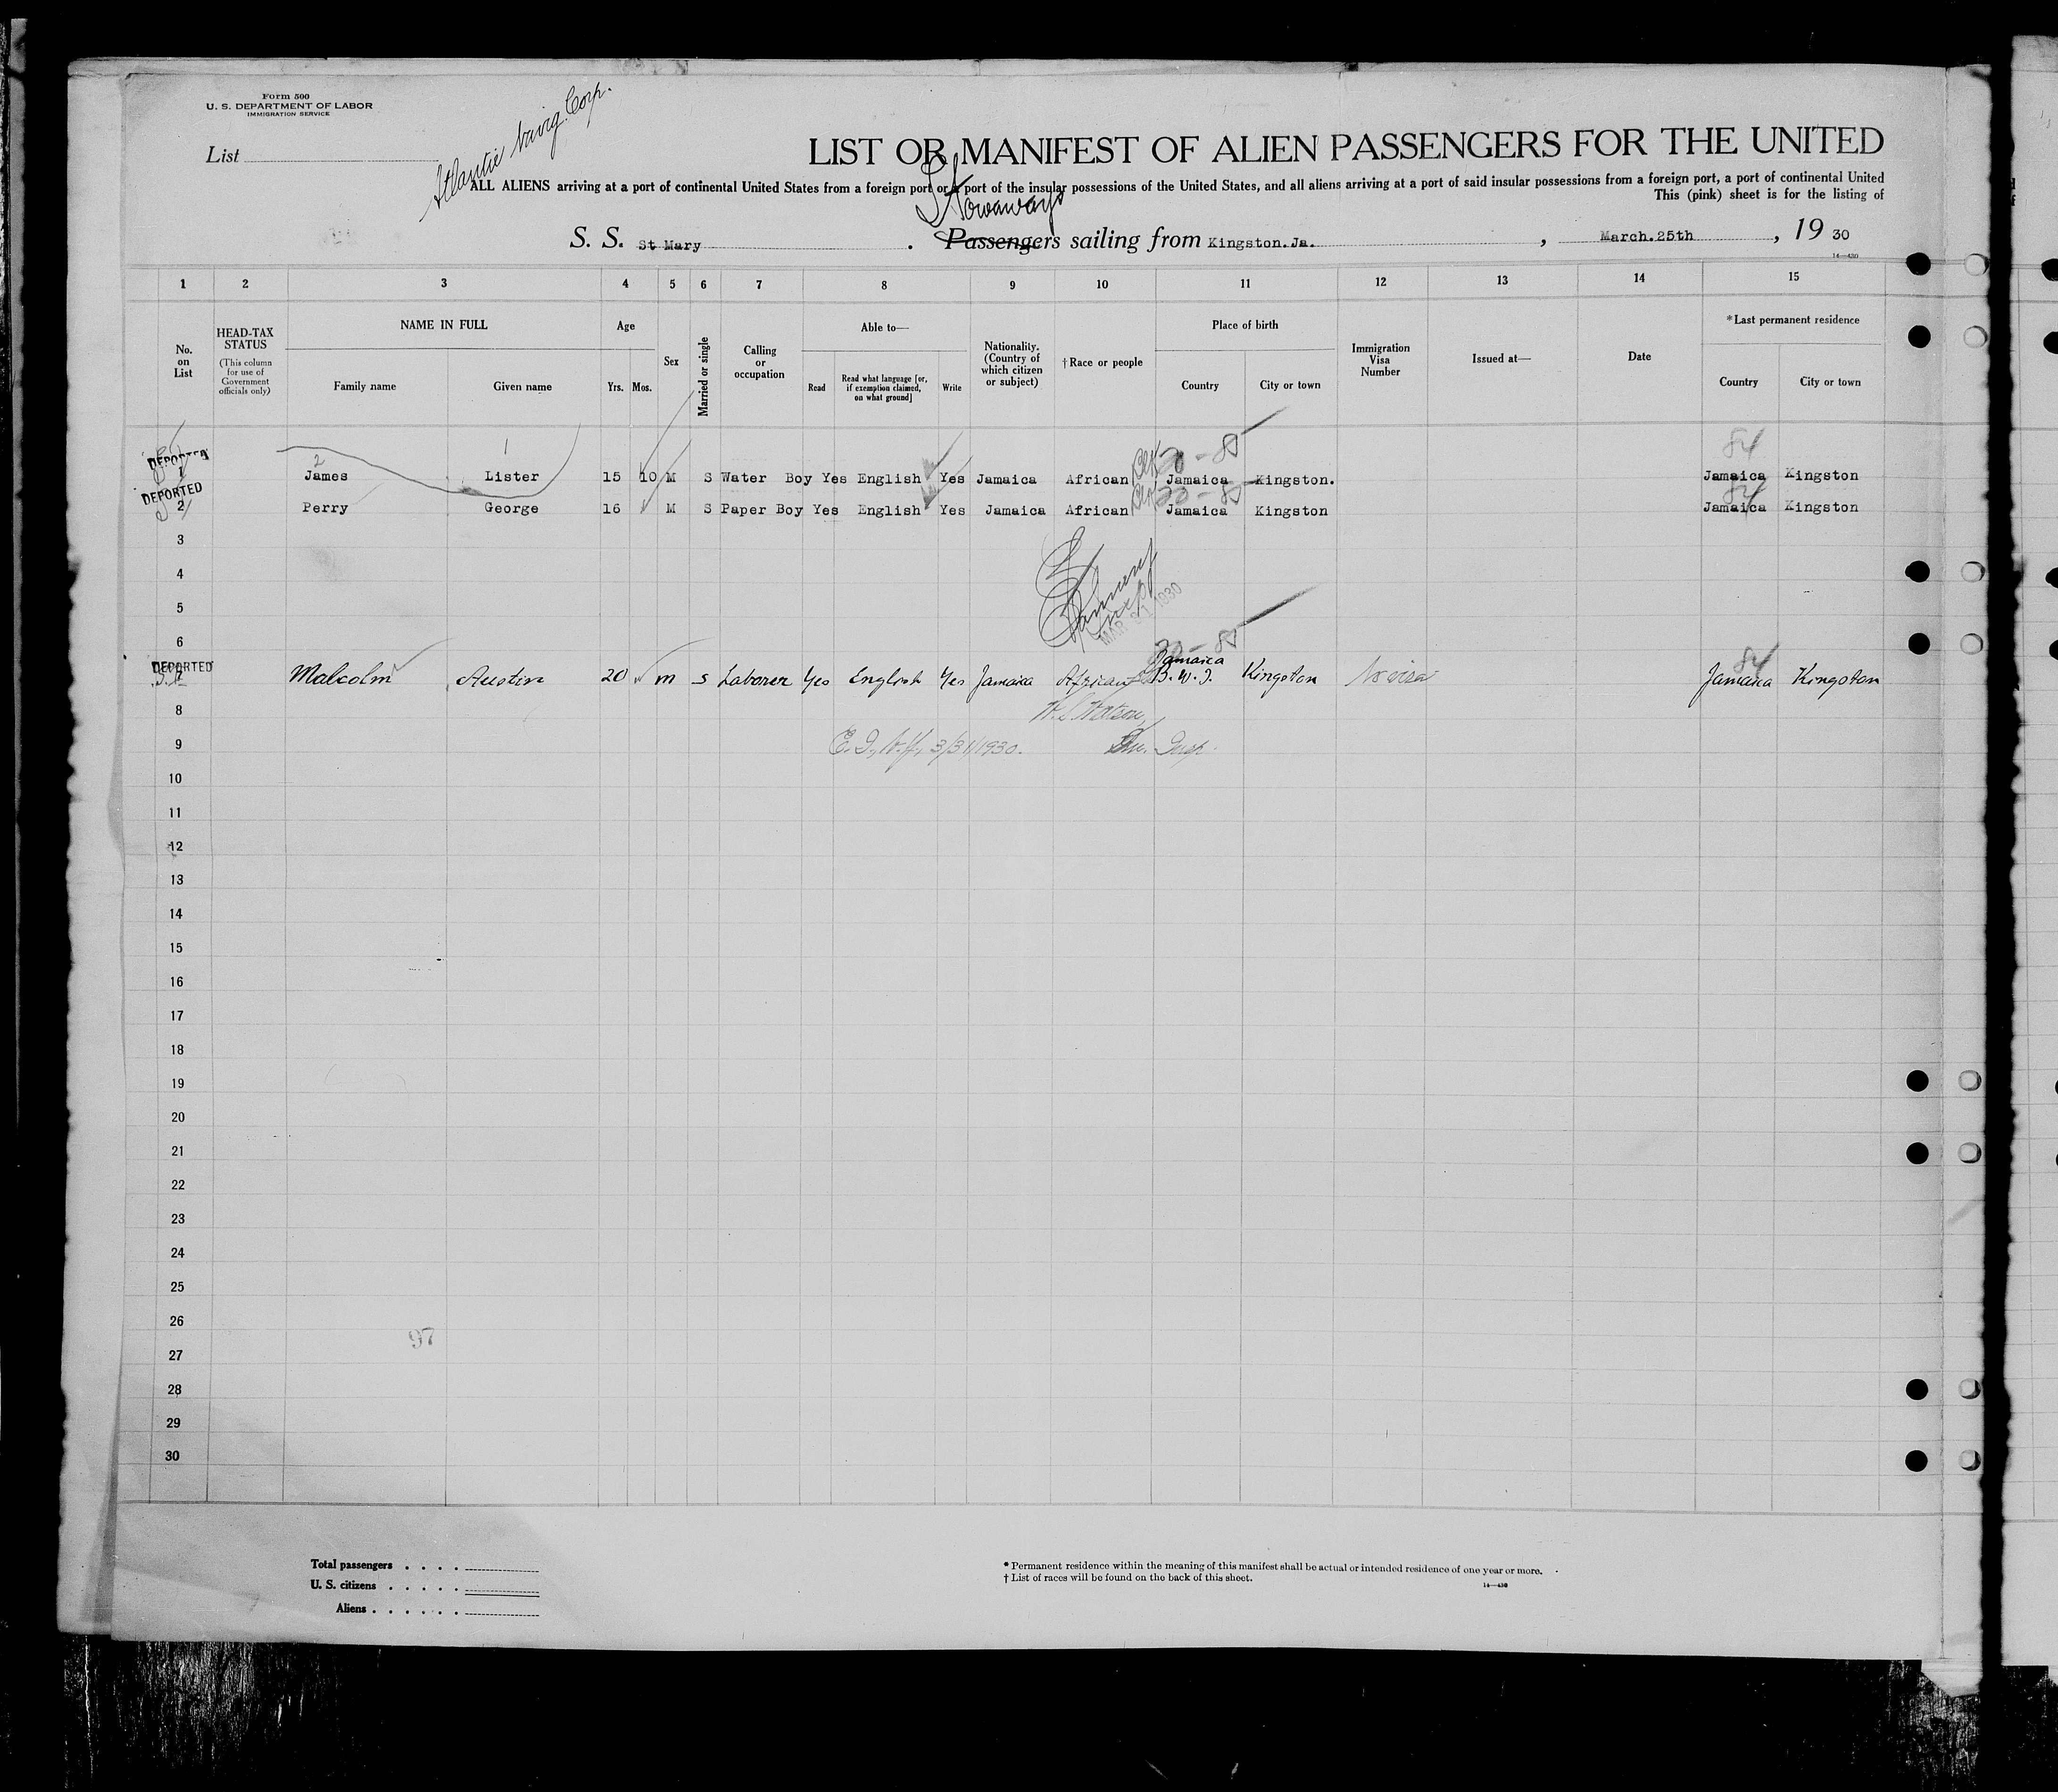 Form 500
U. S. DEPARTMENT OF LABOR
IMMIGRATION SERVICE
Atlantic Navig. Corp.
List
LIST OR MANIFEST OF ALIEN PASSENGERS FOR THE UNITED
ALL ALIENS arriving at a port of continental United States from a foreign port or a port of the insular possessions of the United States, and all aliens arriving at a port of said insular possessions from a foreign port, a port of continental United
This (pink) sheet is for the listing of
Stowaways
S. S. St Mary . Passengers sailing from Kingston.Ja. , March.25th , 19 30
14—430
1 2 3 4 5 6 7 8 9 10 11 12 13 14 15
No. on List
HEAD-TAX STATUS
(This column for use of Government officials only)
NAME IN FULL
Family name Given name
Age
Yrs. Mos.
Sex
Married or single
Calling or occupation
Able to—
Read Read what language [or, if exemption claimed, on what ground] Write
Nationality. (Country of which citizen or subject)
†Race or people
Place of birth
Country City or town
Immigration Visa Number
Issued at—
Date
*Last permanent residence
Country City or town
2 1 20 - 85 84
DEPORTED
1 James Lister 15 10 M S Water Boy Yes English Yes Jamaica African Blk Jamaica Kingston. Jamaica Kingston
DEPORTED 20 - 85 84
2 Perry George 16 M S Paper Boy Yes English Yes Jamaica African Blk Jamaica Kingston Jamaica Kingston
3
4
5
MAR 31 1930
6
20 - 85 84
DEPORTED Jamaica
7 Malcolm Austin 20 m s Laborer Yes English Yes Jamaica African B. W. I. Kingston No visa Jamaica Kingston
8 Watson,
9 3/31/1930. Insp.
10
11
12
13
14
15
16
17
18
19
20
21
22
23
24
25
26
97
27
28
29
30
Total passengers . . . .
U. S. citizens . . . . .
Aliens . . . . . .
* Permanent residence within the meaning of this manifest shall be actual or intended residence of one year or more.
† List of races will be found on the back of this sheet.
14—430